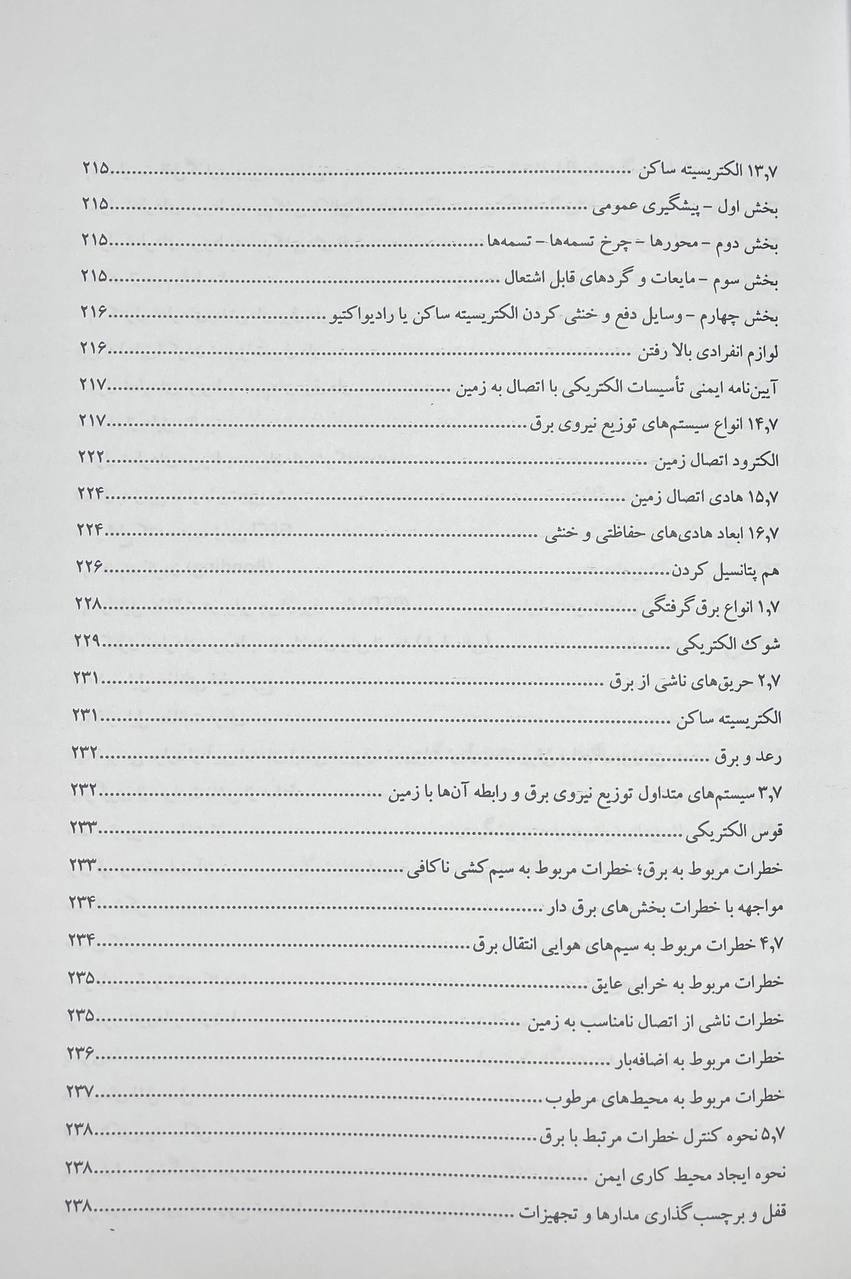 ۱۳٫۷ الکتریسیته ساکن ........ ۲۱۵
بخش اول – پیشگیری عمومی ........ ۲۱۵
بخش دوم – محورها – چرخ تسمه‌ها – تسمه‌ها ........ ۲۱۵
بخش سوم – مایعات و گردهای قابل اشتعال ........ ۲۱۵
بخش چهارم – وسایل دفع و خنثی کردن الکتریسیته ساکن یا رادیواکتیو ........ ۲۱۶
لوازم انفرادی بالا رفتن ........ ۲۱۶
آیین‌نامه ایمنی تأسیسات الکتریکی با اتصال به زمین ........ ۲۱۷
۱۴٫۷ انواع سیستم‌های توزیع نیروی برق ........ ۲۱۷
الکترود اتصال زمین ........ ۲۲۲
۱۵٫۷ هادی اتصال زمین ........ ۲۲۴
۱۶٫۷ ابعاد هادی‌های حفاظتی و خنثی ........ ۲۲۴
هم پتانسیل کردن ........ ۲۲۶
۱٫۷ انواع برق‌گرفتگی ........ ۲۲۸
شوک الکتریکی ........ ۲۲۹
۲٫۷ حریق‌های ناشی از برق ........ ۲۳۱
الکتریسیته ساکن ........ ۲۳۱
رعد و برق ........ ۲۳۲
۳٫۷ سیستم‌های متداول توزیع نیروی برق و رابطه آن‌ها با زمین ........ ۲۳۲
قوس الکتریکی ........ ۲۳۳
خطرات مربوط به برق؛ خطرات مربوط به سیم‌کشی ناکافی ........ ۲۳۳
مواجهه با خطرات بخش‌های برق دار ........ ۲۳۴
۴٫۷ خطرات مربوط به سیم‌های هوایی انتقال برق ........ ۲۳۴
خطرات مربوط به خرابی عایق ........ ۲۳۵
خطرات ناشی از اتصال نامناسب به زمین ........ ۲۳۵
خطرات مربوط به اضافه‌بار ........ ۲۳۶
خطرات مربوط به محیط‌های مرطوب ........ ۲۳۷
۵٫۷ نحوه کنترل خطرات مرتبط با برق ........ ۲۳۸
نحوه ایجاد محیط کاری ایمن ........ ۲۳۸
قفل و برچسب‌گذاری مدارها و تجهیزات ........ ۲۳۸